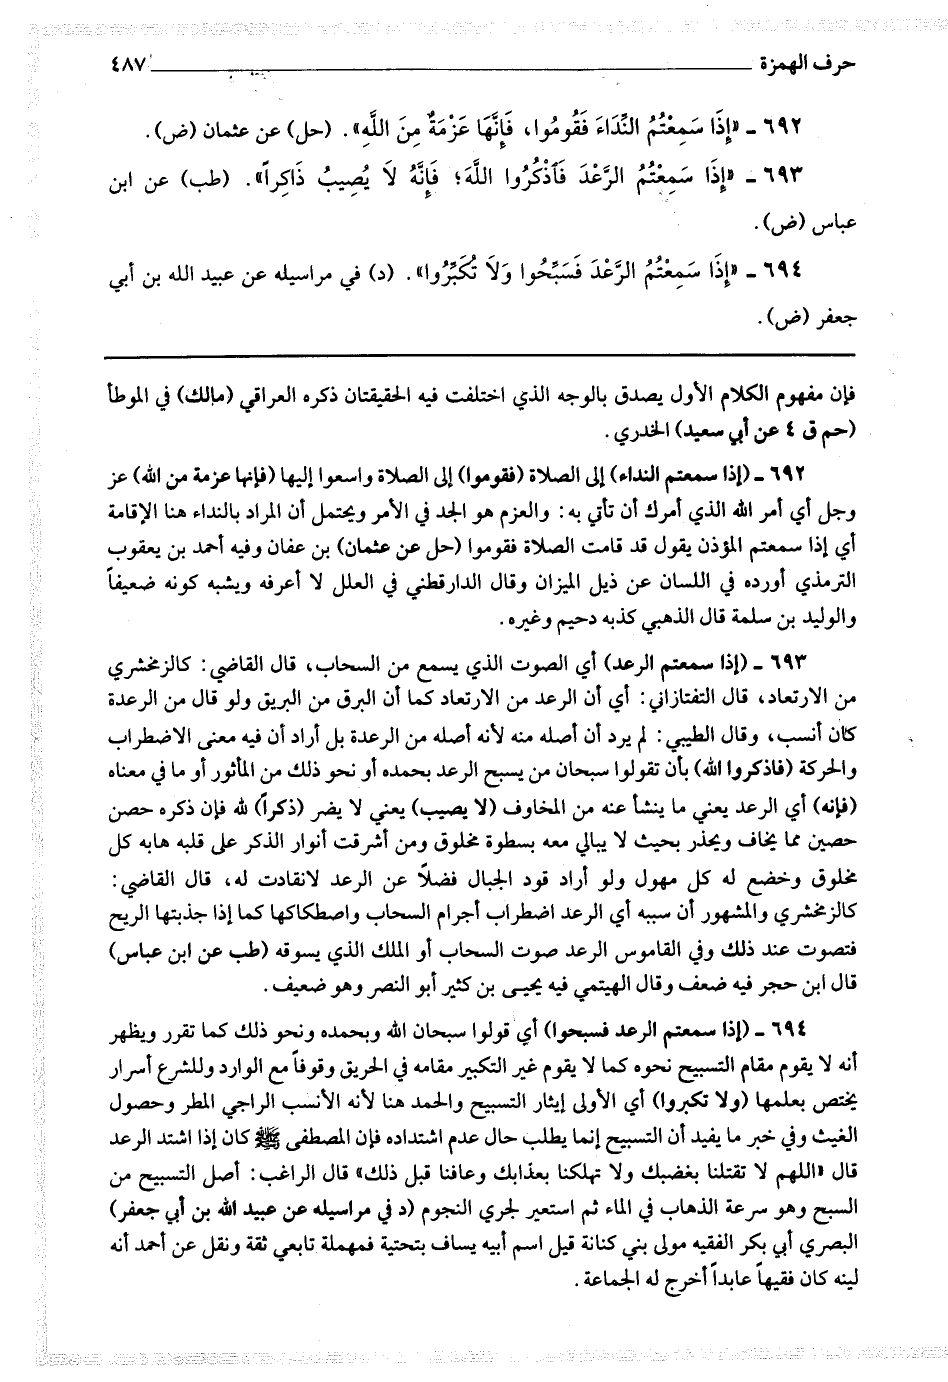 حرف الهمزة ٤٨٧
٦٩٢ ـ «إِذَا سَمِعْتُمُ النِّدَاءَ فَقُومُوا، فَإِنَّهَا عَزْمَةٌ مِنَ اللَّهِ». (حل) عن عثمان (ض).
٦٩٣ ـ «إِذَا سَمِعْتُمُ الرَّعْدَ فَاَذْكُرُوا اللَّهَ؛ فَإِنَّهُ لَا يُصِيبُ ذَاكِراً». (طب) عن ابن
عباس (ض).
٦٩٤ ـ «إِذَا سَمِعْتُمُ الرَّعْدَ فَسَبِّحُوا وَلَا تُكَبِّرُوا». (د) في مراسيله عن عبيد الله بن أبي
جعفر (ض).
فإن مفهوم الكلام الأول يصدق بالوجه الذي اختلفت فيه الحقيقتان ذكره العراقي (مالك) في الموطأ
(حم ق ٤ عن أبي سعيد) الخدري.
٦٩٢ ـ (إذا سمعتم النداء) إلى الصلاة (فقوموا) إلى الصلاة واسعوا إليها (فإنها عزمة من الله) عز
وجل أي أمر الله الذي أمرك أن تأتي به: والعزم هو الجد في الأمر ويحتمل أن المراد بالنداء هنا الإقامة
أي إذا سمعتم المؤذن يقول قد قامت الصلاة فقوموا (حل عن عثمان) بن عفان وفيه أحمد بن يعقوب
الترمذي أورده في اللسان عن ذيل الميزان وقال الدارقطني في العلل لا أعرفه ويشبه كونه ضعيفاً
والوليد بن سلمة قال الذهبي كذبه دحيم وغيره.
٦٩٣ ـ (إذا سمعتم الرعد) أي الصوت الذي يسمع من السحاب، قال القاضي: كالزمخشري
من الارتعاد، قال التفتازاني: أي أن الرعد من الارتعاد كما أن البرق من البريق ولو قال من الرعدة
كان أنسب، وقال الطيبي: لم يرد أن أصله منه لأنه أصله من الرعدة بل أراد أن فيه معنى الاضطراب
والحركة (فاذكروا الله) بأن تقولوا سبحان من يسبح الرعد بحمده أو نحو ذلك من المأثور أو ما في معناه
(فإنه) أي الرعد يعني ما ينشأ عنه من المخاوف (لا يصيب) يعني لا يضر (ذكراً) لله فإن ذكره حصن
حصين مما يخاف ويحذر بحيث لا يبالي معه بسطوة مخلوق ومن أشرقت أنوار الذكر على قلبه هابه كل
مخلوق وخضع له كل مهول ولو أراد قود الجبال فضلاً عن الرعد لانقادت له، قال القاضي:
كالزمخشري والمشهور أن سببه أي الرعد اضطراب أجرام السحاب واصطكاكها كما إذا جذبتها الريح
فتصوت عند ذلك وفي القاموس الرعد صوت السحاب أو الملك الذي يسوقه (طب عن ابن عباس)
قال ابن حجر فيه ضعف وقال الهيتمي فيه يحيى بن كثير أبو النصر وهو ضعيف.
٦٩٤ ـ (إذا سمعتم الرعد فسبحوا) أي قولوا سبحان الله وبحمده ونحو ذلك كما تقرر ويظهر
أنه لا يقوم مقام التسبيح نحوه كما لا يقوم غير التكبير مقامه في الحريق وقوفاً مع الوارد وللشرع أسرار
يختص بعلمها (ولا تكبروا) أي الأولى إيثار التسبيح والحمد هنا لأنه الأنسب الراجي المطر وحصول
الغيث وفي خبر ما يفيد أن التسبيح إنما يطلب حال عدم اشتداده فإن المصطفى ﷺ كان إذا اشتد الرعد
قال «اللهم لا تقتلنا بغضبك ولا تهلكنا بعذابك وعافنا قبل ذلك» قال الراغب: أصل التسبيح من
السبح وهو سرعة الذهاب في الماء ثم استعير لجري النجوم (د في مراسيله عن عبيد الله بن أبي جعفر)
البصري أبي بكر الفقيه مولى بني كنانة قيل اسم أبيه يساف بتحتية فمهملة تابعي ثقة ونقل عن أحمد أنه
لينه كان فقيهاً عابداً أخرج له الجماعة.